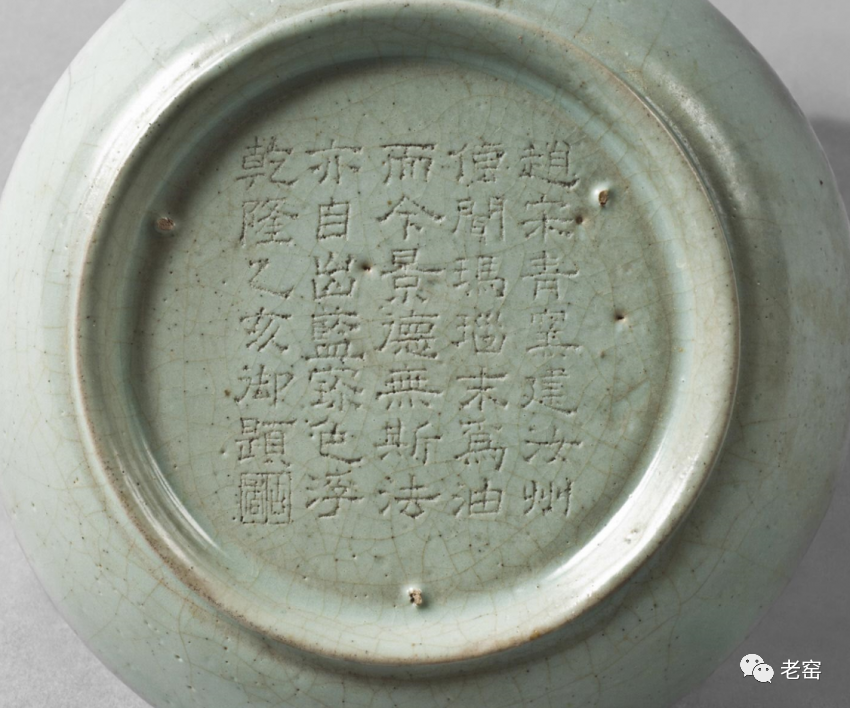 趙宋青窯建汝州
傳聞瑪瑙末爲油
而今景德無斯法
亦自出藍寳色浮
乾隆乙亥御題
老窑